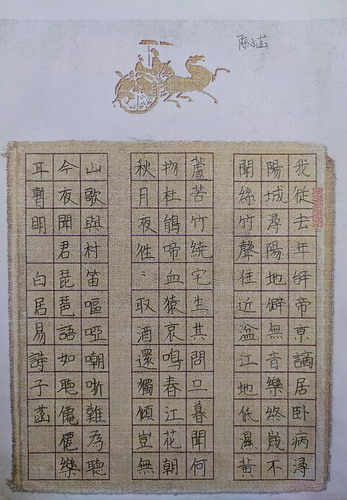 陈子菡
我從去年辝帝京謫居卧病潯
陽城潯陽地僻無音樂終歲不
聞絲竹聲住近湓江地低濕黃
蘆苦竹繞宅生其間旦暮聞何
物杜鵑啼血猿哀鳴春江花朝
秋月夜往〻取酒還獨傾豈無
山歌與村笛嘔啞嘲哳難為聽
今夜聞君琵琶語如聽僊僊樂
耳暫明 白居易詩子菡